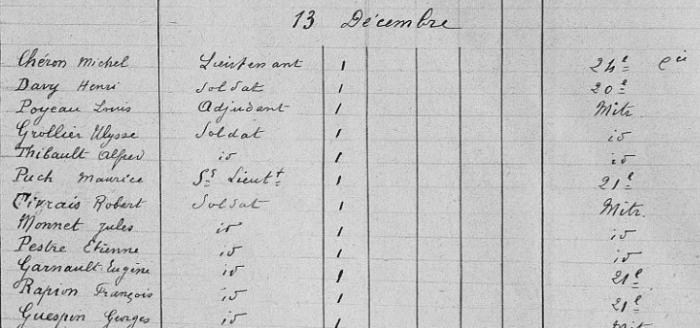 13 Décembre
Chéron Michel Lieutenant 1 24e Cie
Davy Henri Soldat 1 20e
Poyeau Louis Adjudant 1 Mitr.
Grollier Ulysse Soldat 1 id
Thibault Alfred id 1 id
Puch Maurice Ss Lieutt 1 21e
Civrais Robert Soldat 1 Mitr.
Monnet Jules id 1 id
Pestre Etienne id 1 id
Garnault Eugène id 1 21e
Rapion François id 1 21e
Guespin Georges id 1